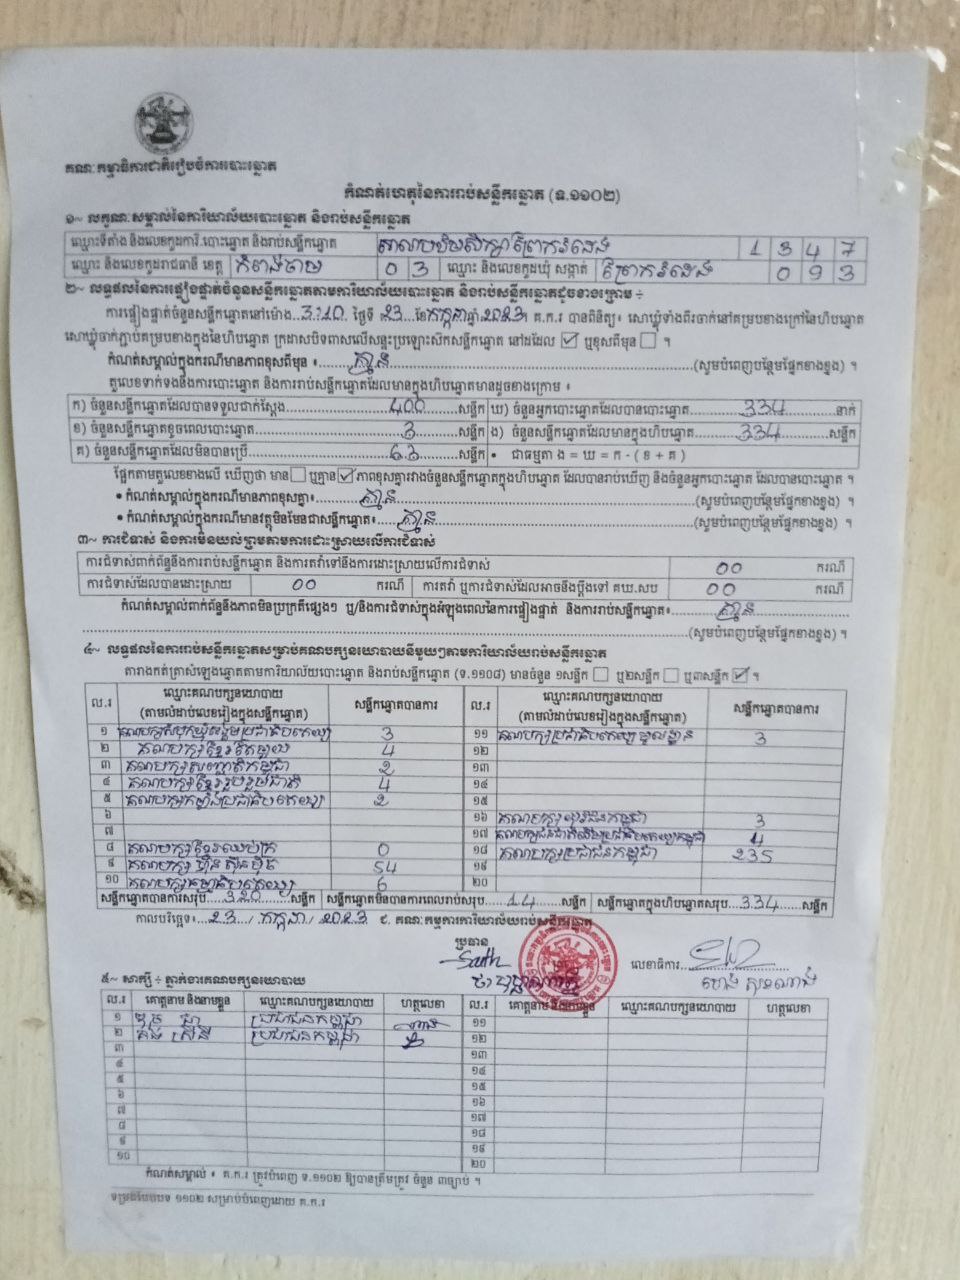 គណៈកម្មាធិការជាតិរៀបចំការបោះឆ្នោត
កំណត់ហេតុនៃការរាប់សន្លឹកឆ្នោត (ទ.១១០២)
១~ លក្ខណៈសម្គាល់នៃការិយាល័យបោះឆ្នោត និងរាប់សន្លឹកឆ្នោត
ឈ្មោះទីតាំង និងលេខកូដការិ.បោះឆ្នោត និងរាប់សន្លឹកឆ្នោត សាលាបឋមសិក្សា ព្រែករំដេង 1 3 4 7
ឈ្មោះ និងលេខកូដរាជធានី ខេត្ត កំពង់ចាម 0 3 ឈ្មោះ និងលេខកូដឃុំ សង្កាត់ ព្រែករំដេង 0 9 3
២~ លទ្ធផលនៃការផ្ទៀងផ្ទាត់ចំនួនសន្លឹកឆ្នោតតាមការិយាល័យបោះឆ្នោត និងរាប់សន្លឹកឆ្នោតដូចខាងក្រោម ÷
ការផ្ទៀងផ្ទាត់ចំនួនសន្លឹកឆ្នោតនៅម៉ោង..3:20..ថ្ងៃទី ..23..ខែកក្កដាឆ្នាំ 2023។ គ.ក.រ បានពិនិត្យ៖ សោឃ្លុំទាំងពីរចាក់នៅគម្របខាងក្រៅនៃហិបឆ្នោត
សោឃ្លុំចាក់ភ្ជាប់គម្របខាងក្នុងនៃហិបឆ្នោត ក្រដាសបិទពាសលើសន្ទះប្រឡោះស៊កសន្លឹកឆ្នោត នៅដដែល ☑ ឬខុសពីមុន ☐ ។
កំណត់សម្គាល់ក្នុងករណីមានភាពខុសពីមុន ៖ គ្មាន (សូមបំពេញបន្ថែមផ្នែកខាងខ្នង) ។
តួលេខទាក់ទងនឹងការបោះឆ្នោត និងការរាប់សន្លឹកឆ្នោតដែលមានក្នុងហិបឆ្នោតមានដូចខាងក្រោម ៖
ក) ចំនួនសន្លឹកឆ្នោតដែលបានទទួលជាក់ស្តែង 400 សន្លឹក ឃ) ចំនួនអ្នកបោះឆ្នោតដែលបានបោះឆ្នោត 334 នាក់
ខ) ចំនួនសន្លឹកឆ្នោតខូចពេលបោះឆ្នោត 3 សន្លឹក ង) ចំនួនសន្លឹកឆ្នោតដែលមានក្នុងហិបឆ្នោត 334 សន្លឹក
គ) ចំនួនសន្លឹកឆ្នោតដែលមិនបានប្រើ 63 សន្លឹក • ជាធម្មតា ង = ឃ = ក - ( ខ + គ )
ផ្អែកតាមតួលេខខាងលើ ឃើញថា មាន ☐ ឬគ្មាន ☑ ភាពខុសគ្នារវាងចំនួនសន្លឹកឆ្នោតក្នុងហិបឆ្នោត ដែលបានរាប់ឃើញ និងចំនួនអ្នកបោះឆ្នោត ដែលបានបោះឆ្នោត ។
• កំណត់សម្គាល់ក្នុងករណីមានភាពខុសគ្នា៖ គ្មាន (សូមបំពេញបន្ថែមផ្នែកខាងខ្នង) ។
• កំណត់សម្គាល់ក្នុងករណីមានវត្ថុមិនមែនជាសន្លឹកឆ្នោត៖ គ្មាន (សូមបំពេញបន្ថែមផ្នែកខាងខ្នង) ។
៣~ ការជំទាស់ និងការមិនយល់ព្រមតាមការដោះស្រាយលើការជំទាស់
ការជំទាស់ពាក់ព័ន្ធនឹងការរាប់សន្លឹកឆ្នោត និងការតវ៉ាទៅនឹងការដោះស្រាយលើការជំទាស់ 00 ករណី
ការជំទាស់ដែលបានដោះស្រាយ 00 ករណី ការតវ៉ា ឬការជំទាស់ដែលអាចនឹងប្តឹងទៅ គឃ.សប 00 ករណី
កំណត់សម្គាល់ពាក់ព័ន្ធនឹងភាពមិនប្រក្រតីផ្សេងៗ ឬ/និងការជំទាស់ក្នុងអំឡុងពេលនៃការផ្ទៀងផ្ទាត់ និងការរាប់សន្លឹកឆ្នោត៖ គ្មាន
(សូមបំពេញបន្ថែមផ្នែកខាងខ្នង) ។
៤~ លទ្ធផលនៃការរាប់សន្លឹកឆ្នោតសម្រាប់គណបក្សនយោបាយនីមួយៗតាមការិយាល័យរាប់សន្លឹកឆ្នោត
តារាងកត់ត្រាសំឡេងឆ្នោតតាមការិយាល័យបោះឆ្នោត និងរាប់សន្លឹកឆ្នោត (ទ.១១០៨) មានចំនួន ១សន្លឹក ☐ ឬ២សន្លឹក ☐ ឬ៣សន្លឹក ☑ ។
ល.រ ឈ្មោះគណបក្សនយោបាយ (តាមលំដាប់លេខរៀងក្នុងសន្លឹកឆ្នោត) សន្លឹកឆ្នោតបានការ ល.រ ឈ្មោះគណបក្សនយោបាយ (តាមលំដាប់លេខរៀងក្នុងសន្លឹកឆ្នោត) សន្លឹកឆ្នោតបានការ
១ គណបក្សសំបុកឃ្មុំសង្គមប្រជាធិបតេយ្យ 3 ១១ គណបក្សប្រជាធិបតេយ្យមូលដ្ឋាន 3
២ គណបក្សខ្មែរតែមួយ 4 ១២
៣ គណបក្សសញ្ជាតិកម្ពុជា 2 ១៣
៤ គណបក្សខ្មែររួបរួមជាតិ 4 ១៤
៥ គណបក្សកម្លាំងប្រជាធិបតេយ្យ 2 ១៥
៦ ១៦ គណបក្សយុវជនកម្ពុជា 3
៧ ១៧ គណបក្សជនជាតិដើមប្រជាធិបតេយ្យកម្ពុជា 4
៨ គណបក្សខ្មែរឈប់ក្រ 0 ១៨ គណបក្សប្រជាជនកម្ពុជា 235
៩ គណបក្សហ៊្វុនស៊ិនប៉ិច 54 ១៩
១០ គណបក្សធម្មាធិបតេយ្យ 6 ២០
សន្លឹកឆ្នោតបានការសរុប 320 សន្លឹក សន្លឹកឆ្នោតមិនបានការពេលរាប់សរុប 14 សន្លឹក សន្លឹកឆ្នោតក្នុងហិបឆ្នោតសរុប 334 សន្លឹក
កាលបរិច្ឆេទ៖ 23 / កក្កដា / 2023 ជ. គណៈកម្មការការិយាល័យរាប់សន្លឹកឆ្នោត
ប្រធាន
លេខាធិការ
៥~ សាក្សី ÷ ភ្នាក់ងារគណបក្សនយោបាយ
ល.រ គោត្តនាម និងនាមខ្លួន ឈ្មោះគណបក្សនយោបាយ ហត្ថលេខា ល.រ គោត្តនាម និងនាមខ្លួន ឈ្មោះគណបក្សនយោបាយ ហត្ថលេខា
១ ប្រជាជនកម្ពុជា ១១
២ ប្រជាជនកម្ពុជា ១២
៣ ១៣
៤ ១៤
៥ ១៥
៦ ១៦
៧ ១៧
៨ ១៨
៩ ១៩
១០ ២០
កំណត់សម្គាល់ ៖ គ.ក.រ ត្រូវបំពេញ ទ.១១០២ ឱ្យបានត្រឹមត្រូវ ចំនួន ៣ច្បាប់ ។
ទម្រង់បែបបទ ១១០២ សម្រាប់បំពេញដោយ គ.ក.រ